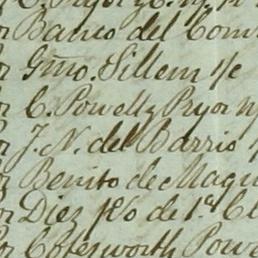 Banco del Com
Gmo. Sillem s/c
C. Powell y Pryor n/
J. N. del Barrio
Benito de Maqu
Diez p% de 1ª Cl
Cotesworth Powe